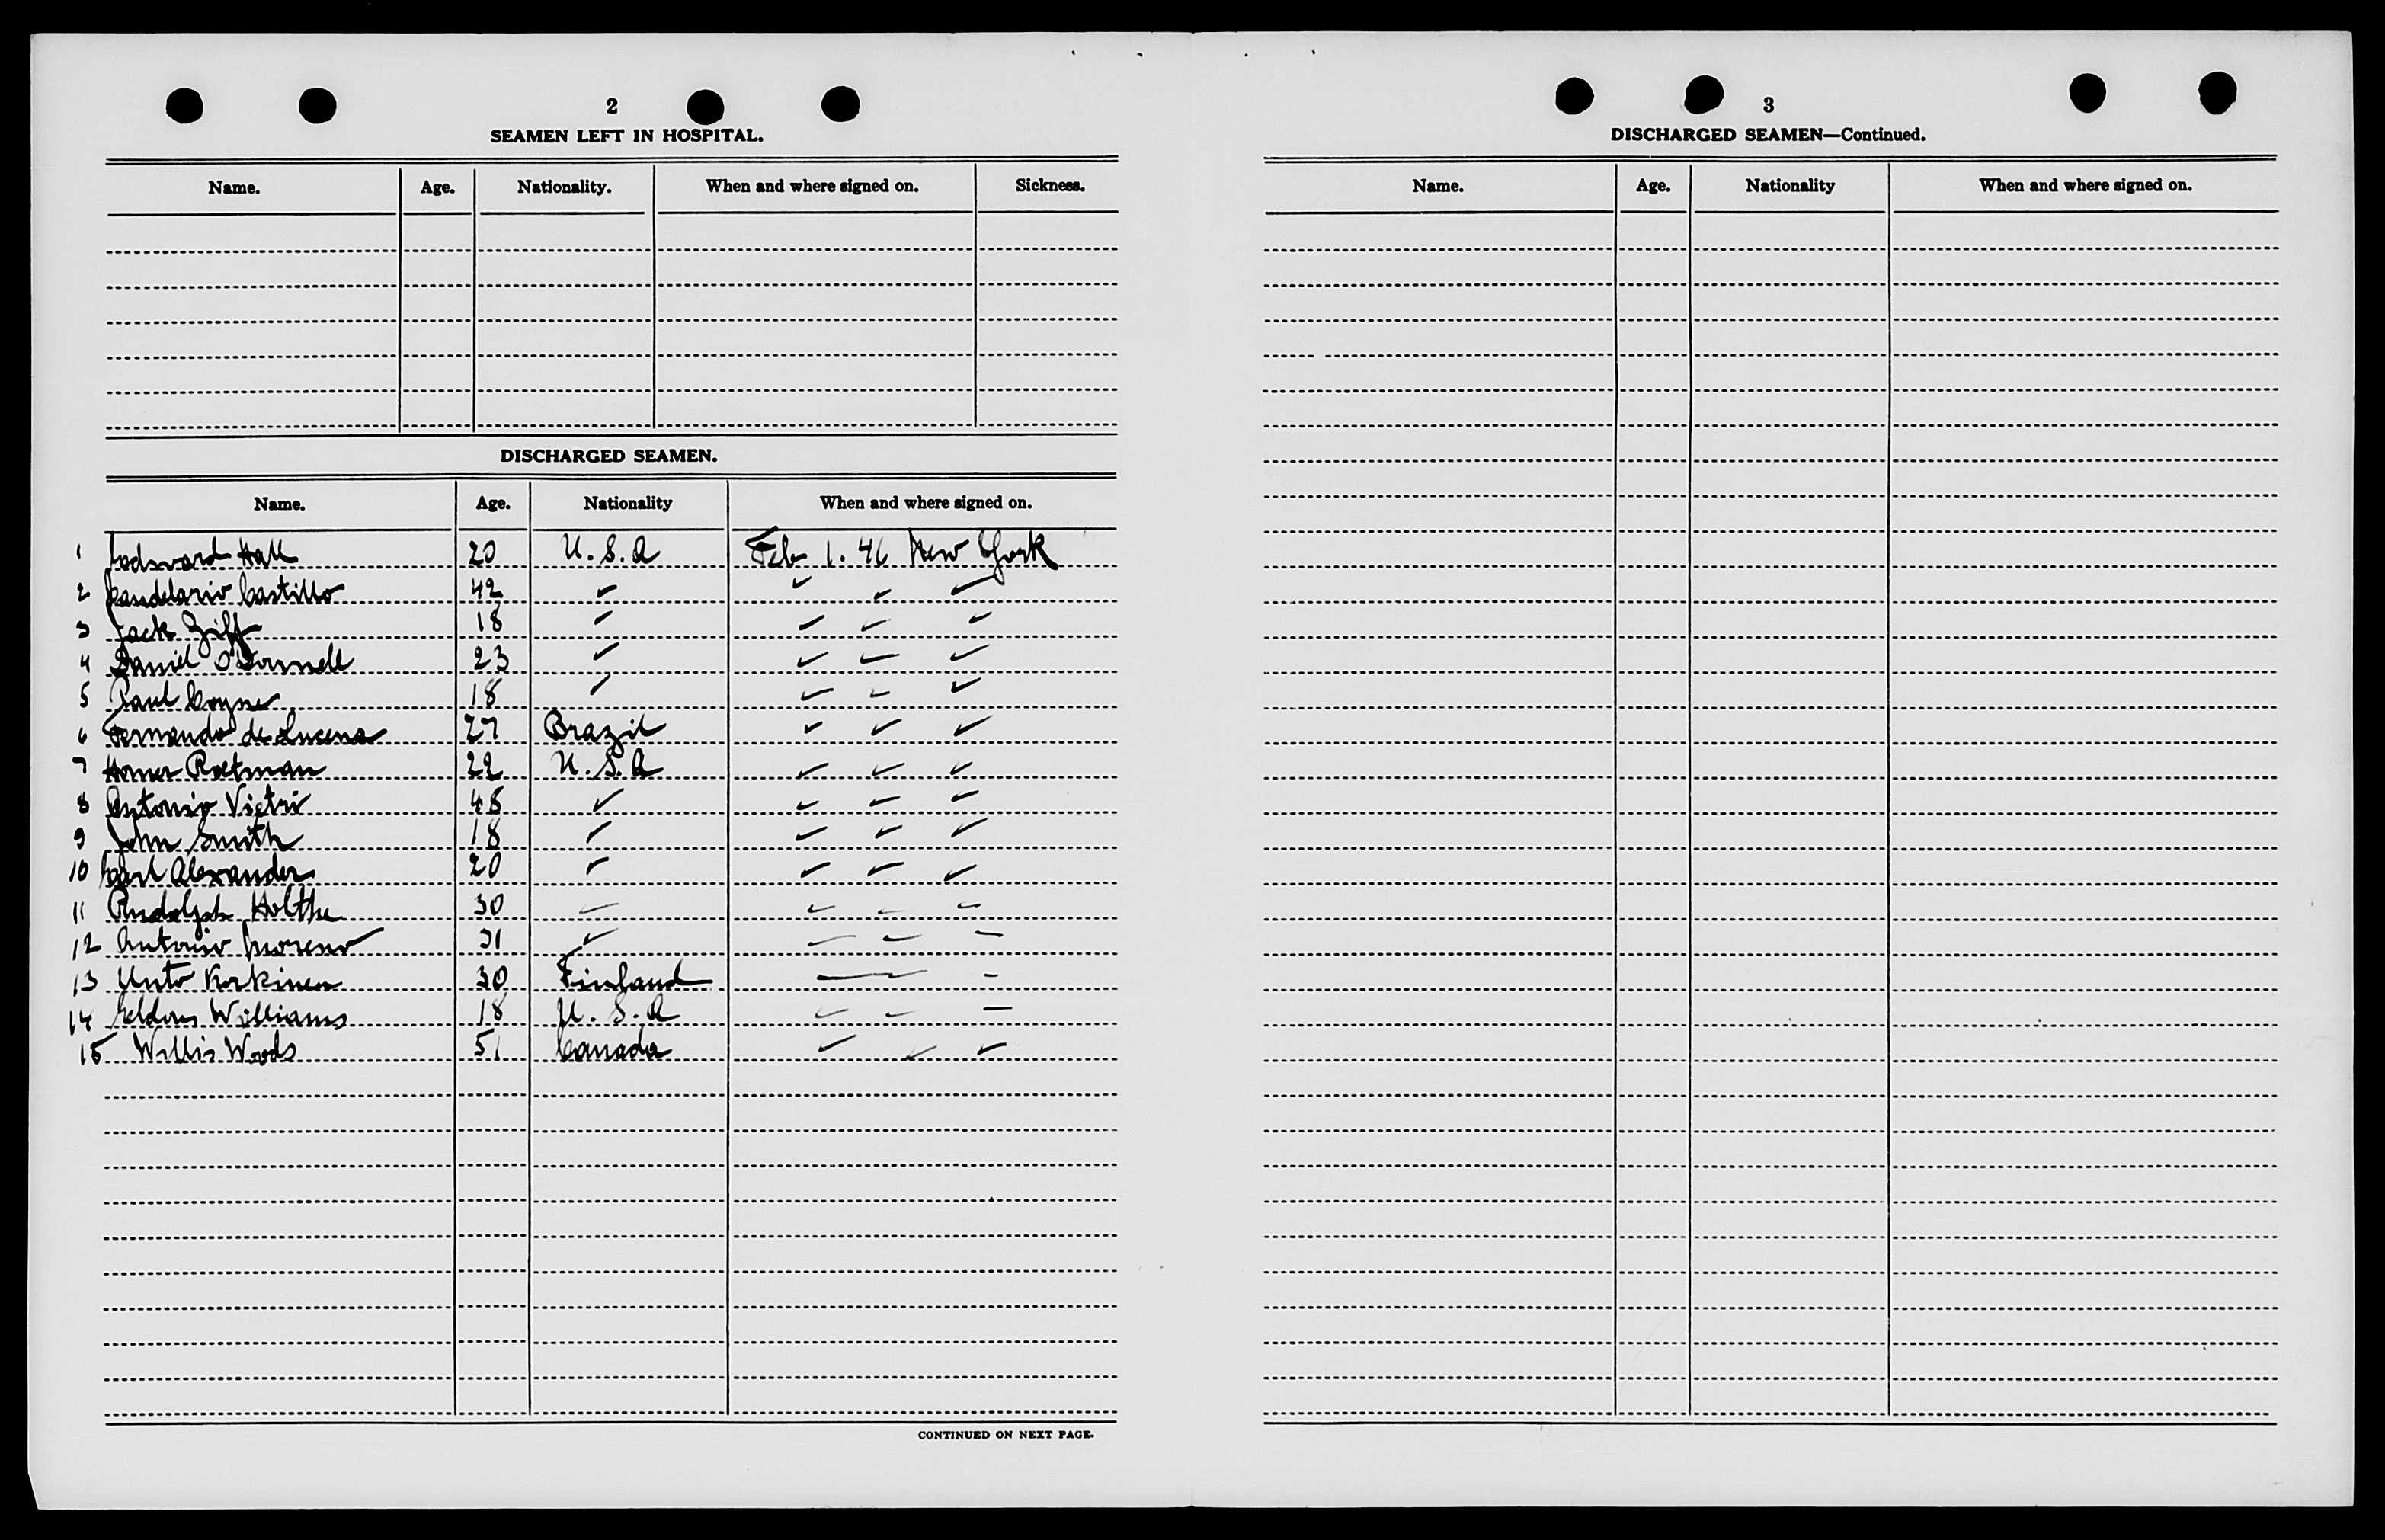 2
SEAMEN LEFT IN HOSPITAL.
Name. Age. Nationality. When and where signed on. Sickness.
DISCHARGED SEAMEN.
Name. Age. Nationality When and where signed on.
1 Edward Hall 20 U.S.A Feb 1. 46 New York
2 Candelario Castillo 42 ✓ ✓ ✓ ✓
3 Jack Ziff 18 ✓ ✓ ✓ ✓
4 Daniel O'Donnell 23 ✓ ✓ ✓ ✓
5 Paul Coyne 18 ✓ ✓ ✓ ✓
6 Fernando de Lucena 27 Brazil ✓ ✓ ✓
7 Homer 22 U.S.A ✓ ✓ ✓
8 Antonio Vietri 48 ✓ ✓ ✓ ✓
9 John Smith 18 ✓ ✓ ✓ ✓
10 Carl Alexander 20 ✓ ✓ ✓ ✓
11 Rudolph Holthe 30 ✓ ✓ ✓ ✓
12 Antonio Moreno 31 ✓ ✓ ✓ –
13 Unto Korkinen 30 Finland – ✓ –
14 Eldon Williams 18 U.S.A ✓ ✓ –
15 Willis Woods 51 Canada ✓ ✓ ✓
CONTINUED ON NEXT PAGE.
3
DISCHARGED SEAMEN—Continued.
Name. Age. Nationality When and where signed on.